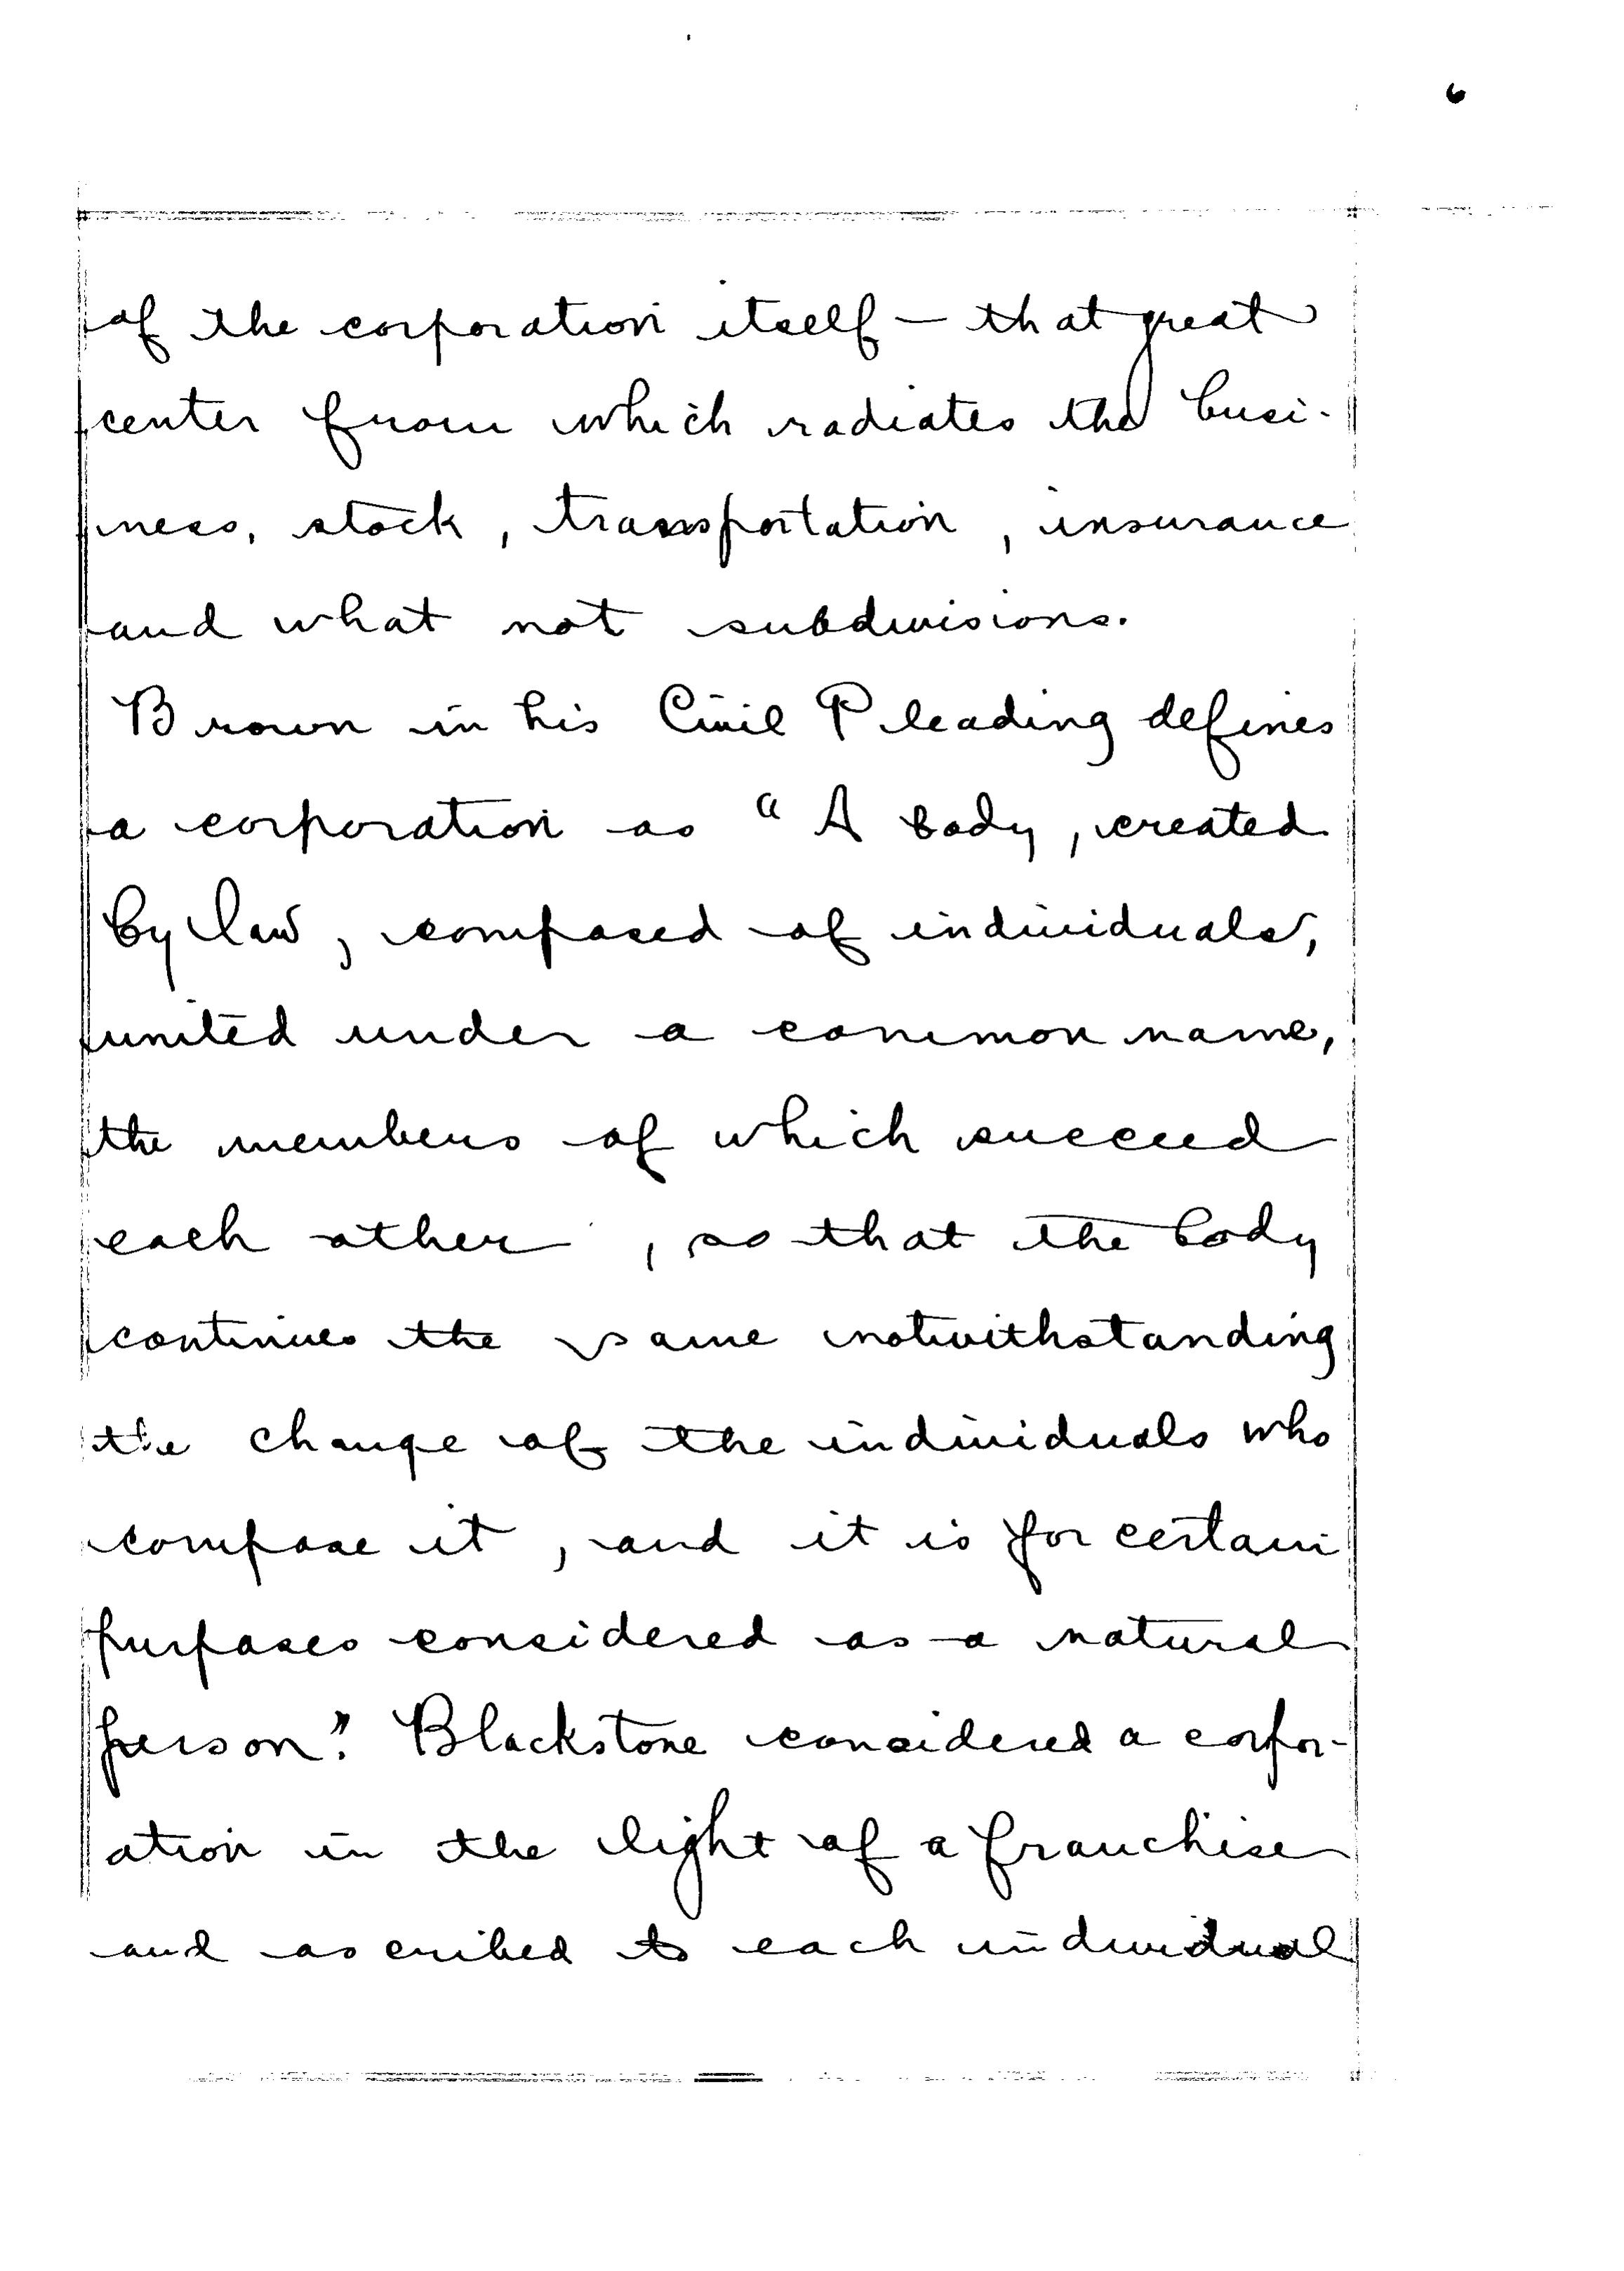 6
of the corporation itself — that great
center from which radiates the busi-
ness, stock, transportation, insurance
and what not subdivisions.
Brown in his Civil Pleading defines
a corporation as "A body, created
by law, composed of individuals,
united under a common name,
the members of which succeed
each other, so that the body
continues the same notwithstanding
the change of the individuals who
compose it, and it is for certain
purposes considered as a natural
person". Blackstone considered a corpor-
ation in the light of a franchise
and ascribed to each individual